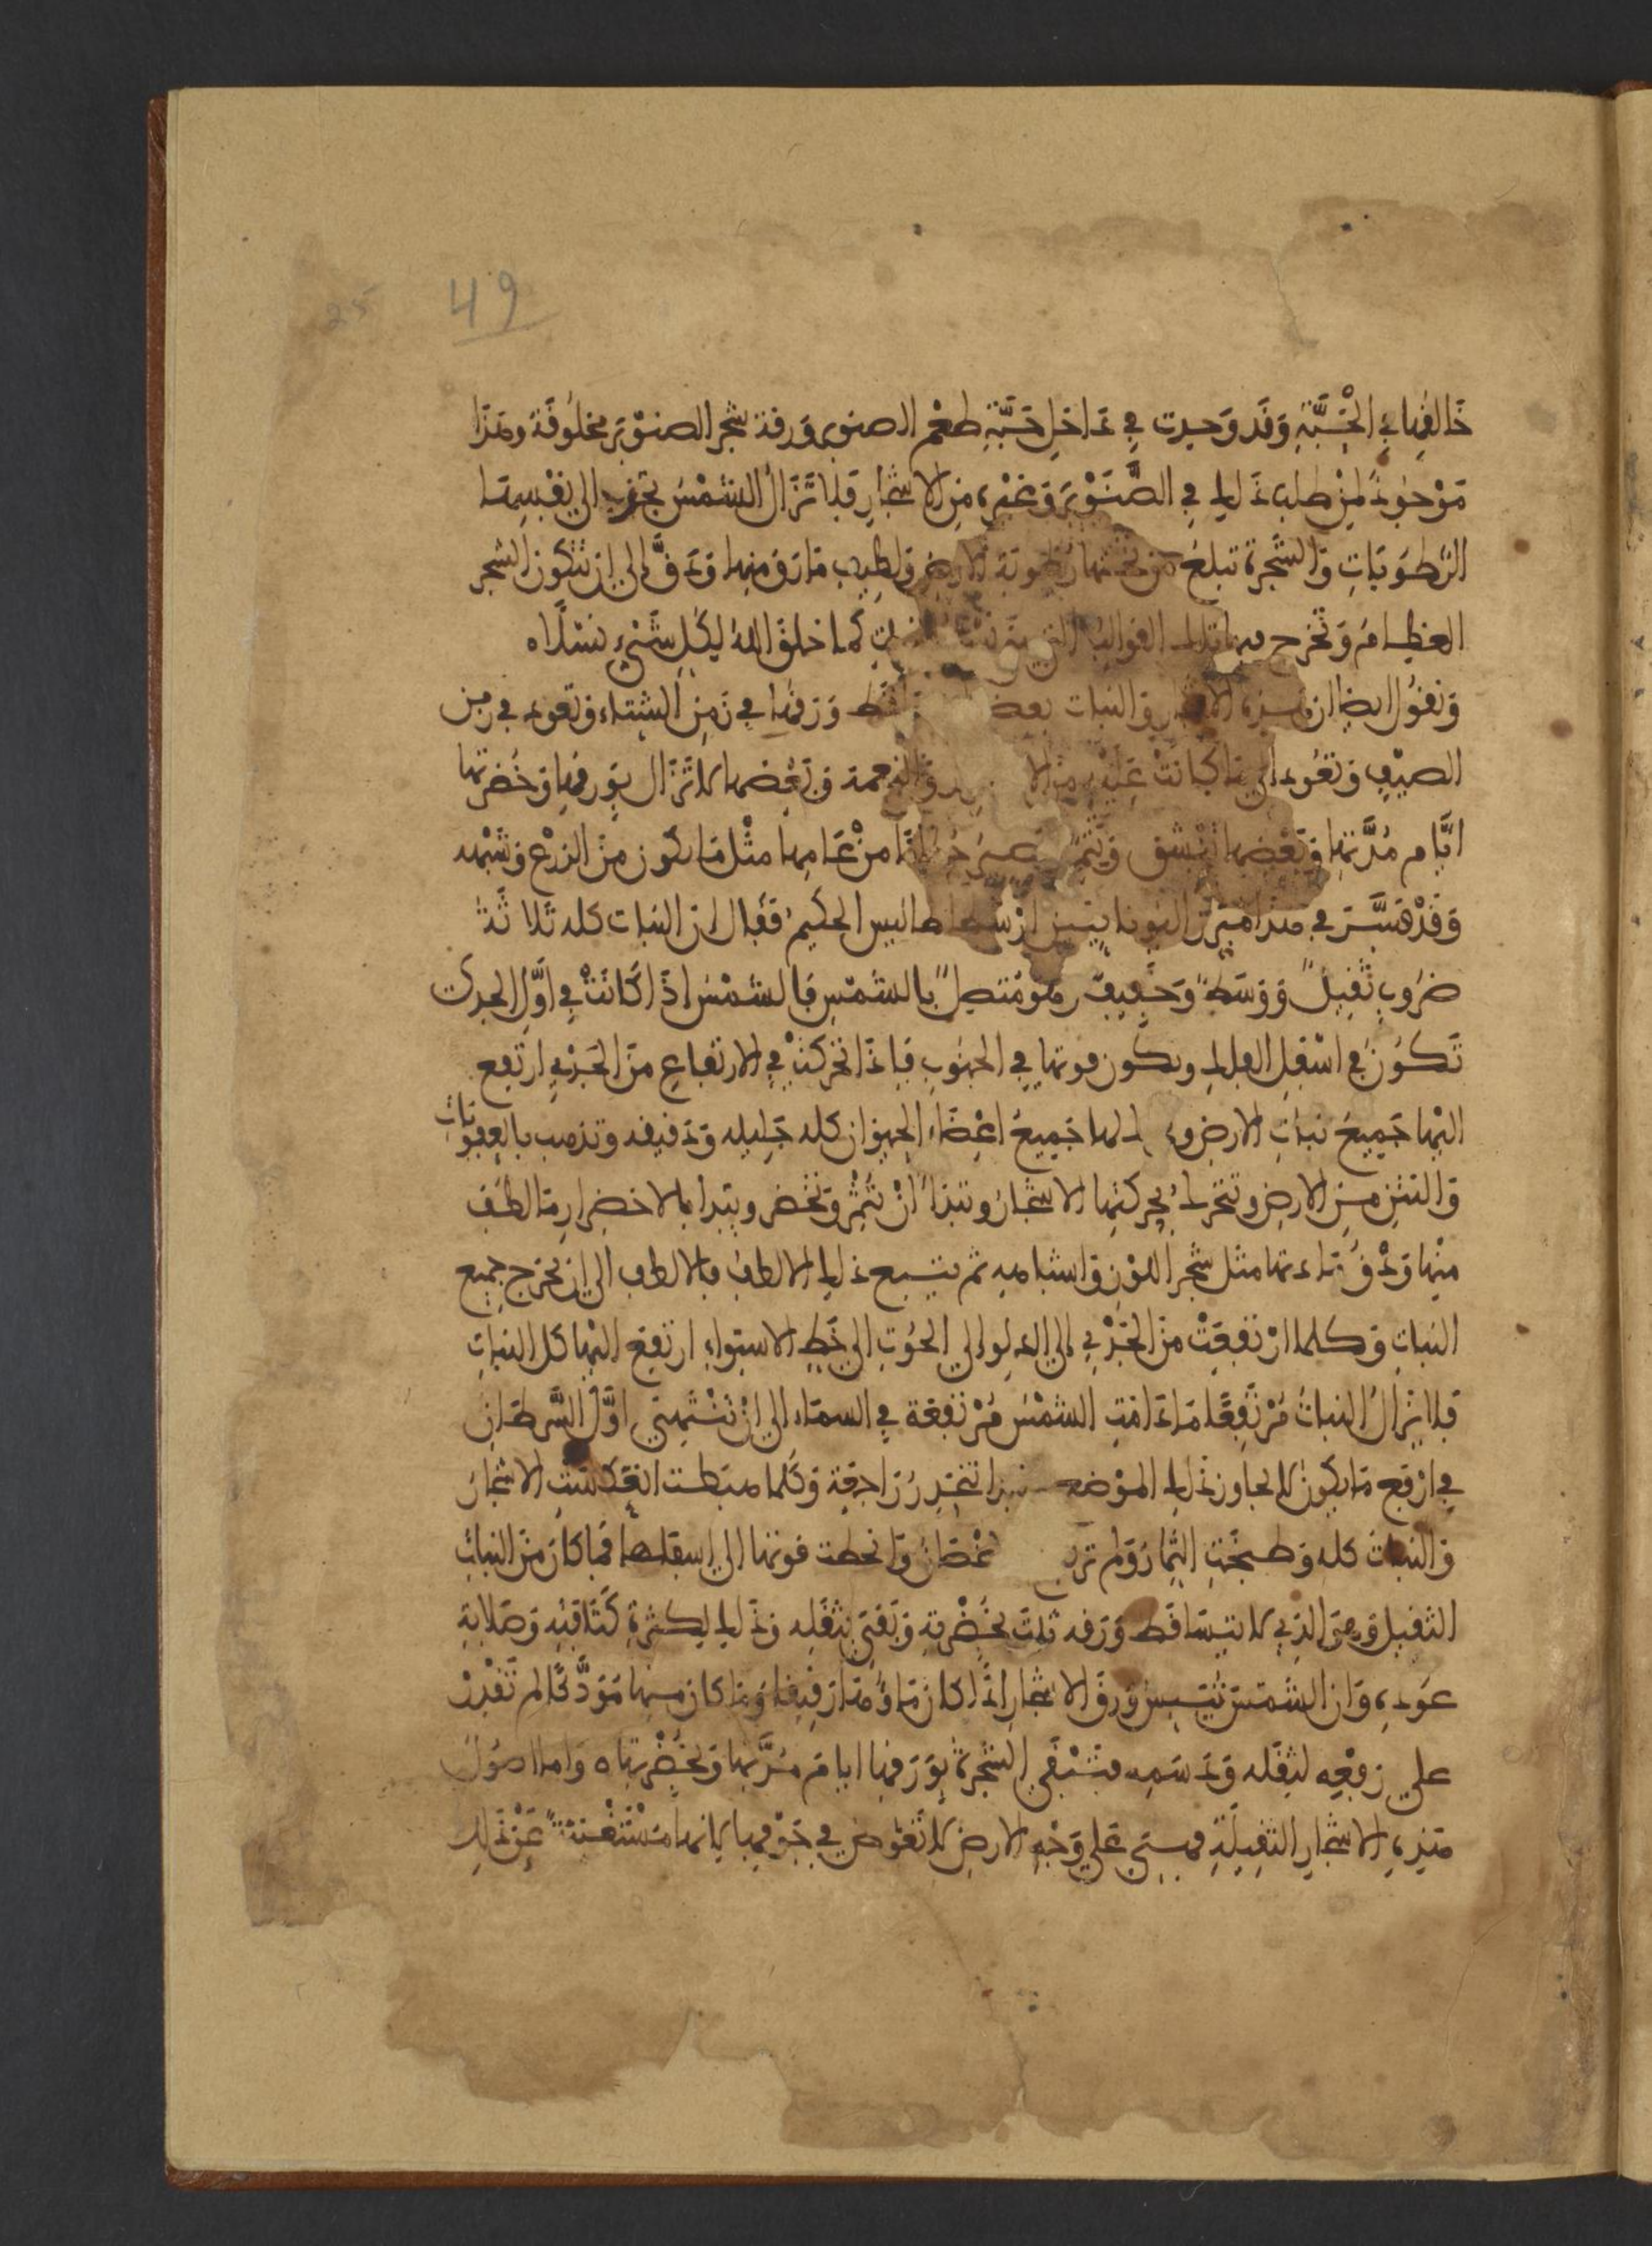 49
25
خالقها في الحبّة وقد وجدت في داخل حبّة طعم الصنوبر ورقة شجر الصنوبر مخلوقة وهذا
موجود لمن طلب ذلك في الصنوبر وغيره من الاشجار فلا تزال الشمس بحرها الى نفسها
الرطوبات والشجرة تبلغ من تحتها رطوبة الارض ولطيف مارق منها ودق الى ان تتكون الشجر
العظام وتخرج فيها تلك القوالب التي كما خلق الله لكل شيء نسلا ه
ونقول ايضا ان هذه الاشجار والنبات بعضها ورقها في زمن الشتاء وتعود في زمن
الصيف وتعود الى ما كانت عليه من الا والنعمة وبعضها لا تزال بورقها وخضرتها
ايام مدتها وبعضها وتثمر من عامها مثل ما يكون من الزرع وشبهه
وقد فسر في هذا من اليونانيين ارسطاطاليس الحكيم فقال ان النبات كله ثلاثة
ضروب ثقيل ووسط وخفيف وهو متصل بالشمس فالشمس اذا كانت في اول الجدي
تكون في اسفل الفلك ويكون قوتها في الجنوب فاذا تحركت في الارتفاع من الجدي ارتفع
اليها جميع نبات الارض و جميع اعضاء الحيوان كله جليله ودقيقه وتذهب بالعفونات
والنتن من الارض وتتحرك بحركتها الاشجار وتبدا ان تثمر وتخضر ويبدا بالاخضرار ما لطف
منها ودق مثل شجر اللوز واشباهه ثم يتبع ذلك الالطف فالالطف الى ان يخرج جميع
النبات وكلما ارتفعت من الجدي الى الدلو الى الحوت الى خط الاستواء ارتفع اليها كل النبات
فلا يزال النبات مرتفعا ما دامت الشمس مرتفعة في السماء الى ان تنتهي اول السرطان
في ارفع ما يكون لا يجاوز ذلك الموضع تنحدر راجعة وكلما هبطت انعكست الاشجار
والنبات كله وطبخت الثمار ولم وانحطت قوتها الى اسفلها فما كان من النبات
الثقيل وهي الذي لا يتساقط ورقه ثبت بخضرته وبقي بثقله وذلك لكثرة كثافته وصلابة
عوده وان الشمس تيبس ورق الاشجار اذا كان ماؤها رقيقا وما كان منها مودكا لم تقدر
على رفعه لثقله ودسمه فتبقى الشجرة بورقها ايام مدتها وبخضرتها ه واما اصول
هذه الاشجار الثقيلة فهي على وجه الارض لا تغوص في جوفها لانها مستغنية عن ذلك